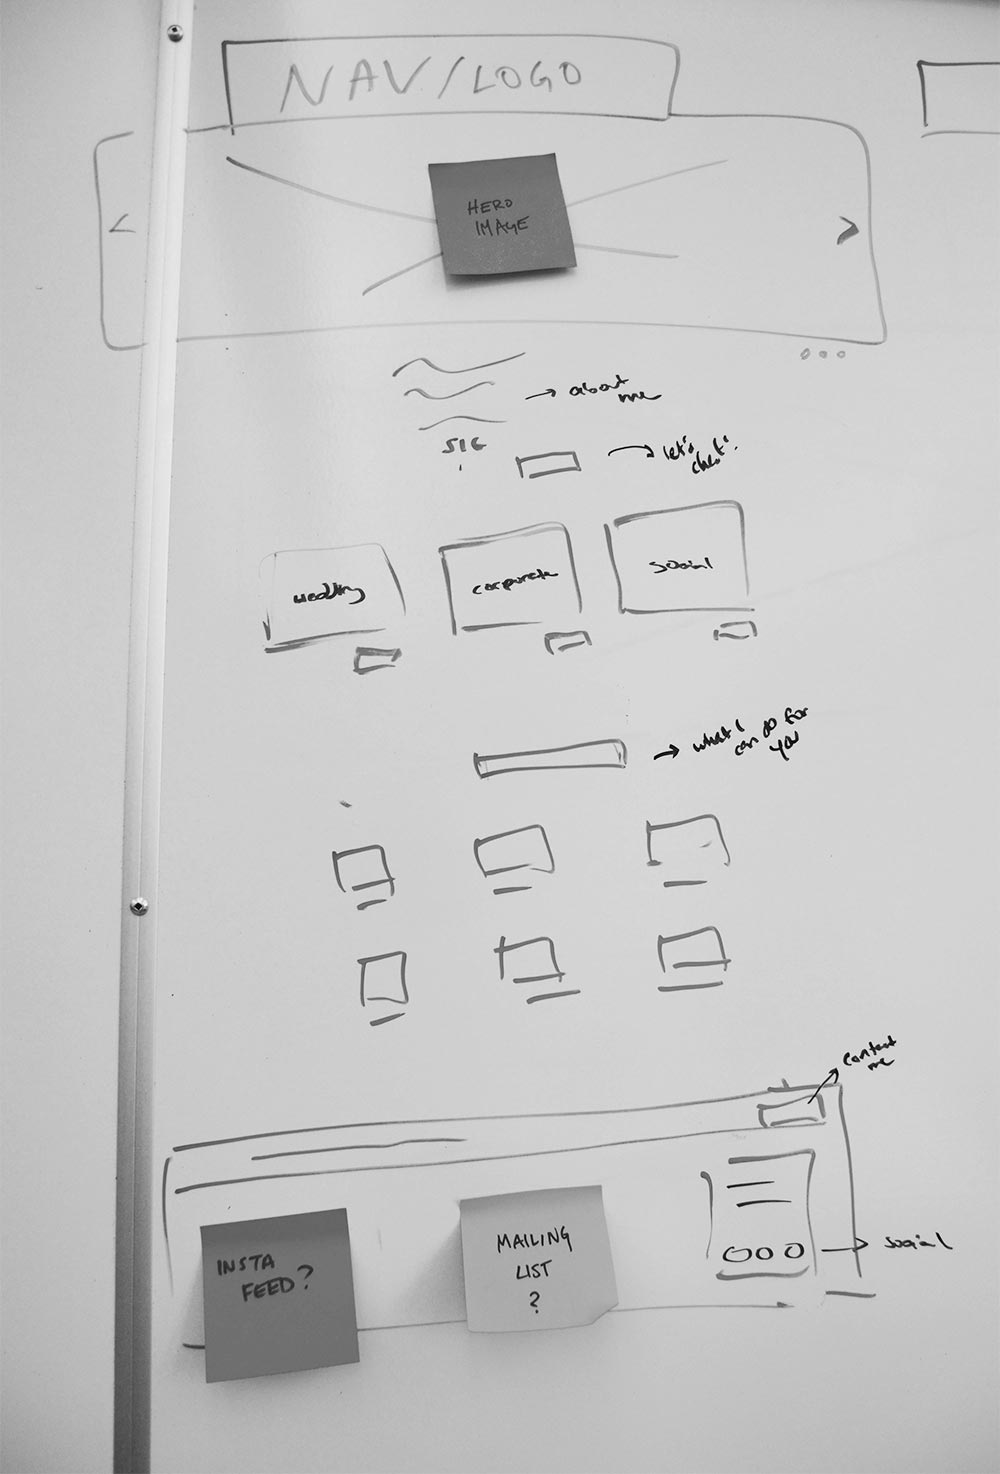 NAV/LOGO
HERO
IMAGE
about
me
SIG
let's
chat!
wedding
corporate
social
what I
can do for
you
contact
me
INSTA
FEED?
MAILING
LIST
?
social